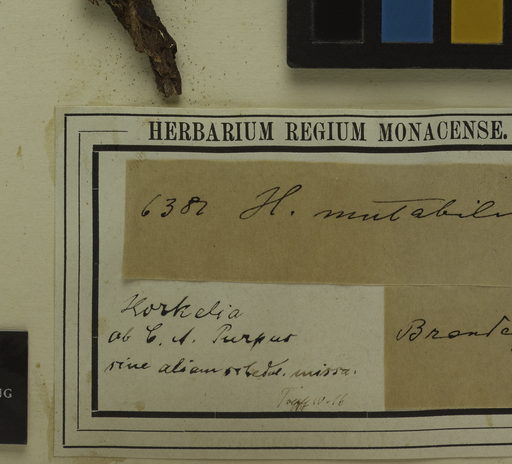 HERBARIUM REGIUM MONACENSE.
6382 H. mutabilis
Horkelia
ab C. A. Purpus
sine aliam schedul. missa.
Brandeg
NG